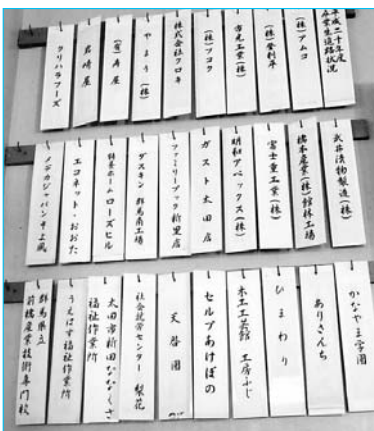 平成二十年度
卒業生進路状況
(株)アムコ
(株)登利平
市光工業(株)
(株)ツコク
株式会社クロキ
やまう(株)
(有)寿屋
岩崎屋
クリハラフーズ
武井漬物製造(株)
橋本産業(株)館林工場
富士重工業(株)
明和アペックス(株)
ガスト太田店
ファミリーブック新里店
ダスキン群馬南工場
特養ホームローズヒル
エコネット・おおた
メデカジャパンそよ風
かなやま学園
ありさんち
ひまわり
木工工芸館 工房ふじ
セルプあけぼの
天啓園
社会就労センター 梨花
太田市新田ななくさ
福祉作業所
うえはす福祉作業所
群馬県立
前橋産業技術専門校